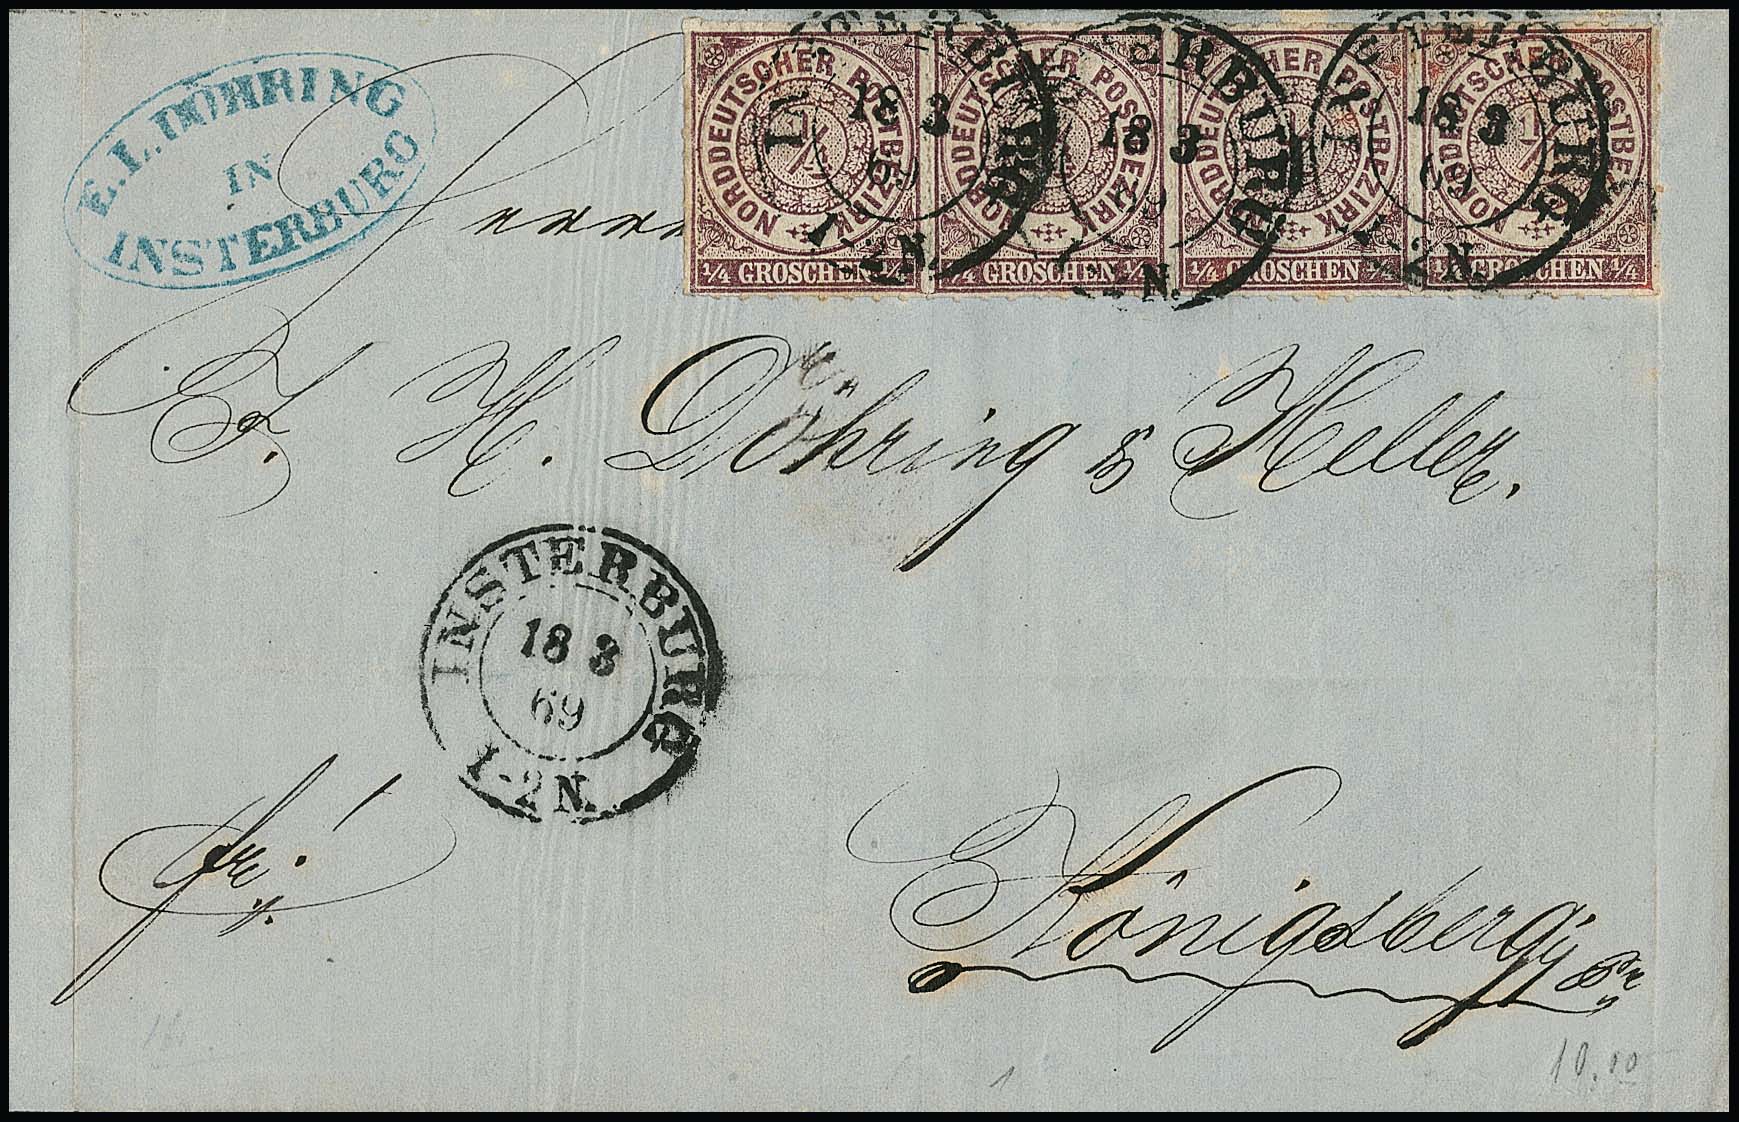 E. L. DÖHRING
IN
INSTERBURG
NORDDEUTSCHER POSTBEZIRK
1/4
1/4 GROSCHEN 1/4
NORDDEUTSCHER POSTBEZIRK
1/4 GROSCHEN 1/4
NORDDEUTSCHER POSTBEZIRK
1/4
1/4 GROSCHEN 1/4
NORDDEUTSCHER POSTBEZIRK
1/4
1/4 GROSCHEN 1/4
INSTERBURG
18 3
69
1-2N.
INSTERBURG
18 3
1-2N.
INSTERBURG
18 3
69
1-2N.
H. Döhring & Heller.
INSTERBURG
18 3
69
1-2N.
Königsberg Pr
10.00